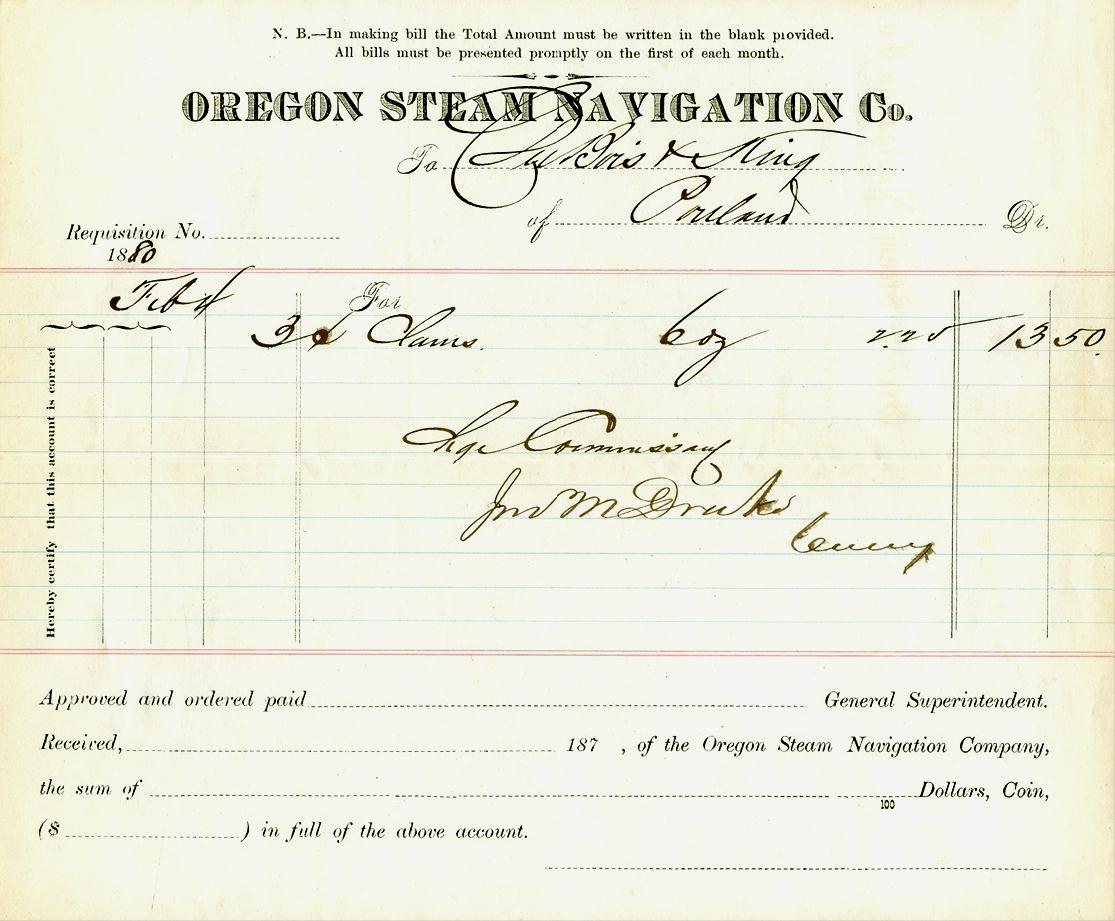 N. B.—In making bill the Total Amount must be written in the blank provided.
All bills must be presented promptly on the first of each month.
OREGON STEAM NAVIGATION Co.
To DuBois & King
of Portland Dr.
Requisition No.
1880
Feb 4
For
3 Clams. 6 dz 2.25 13 50.
Chge Commissary
Jno M Drake
Hereby certify that this account is correct
Approved and ordered paid General Superintendent.
Received, 187 , of the Oregon Steam Navigation Company,
the sum of 100 Dollars, Coin,
($ ) in full of the above account.